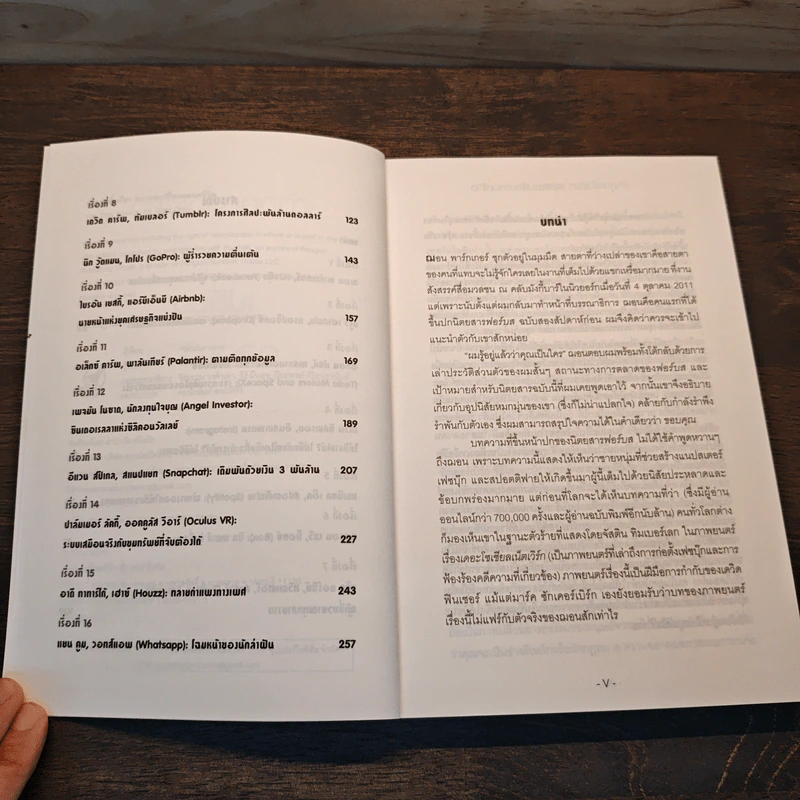 เรื่องที่ 8
เดวิด คาร์พ, ทัมเบลอร์ (Tumblr): โครงการศิลปะพันล้านดอลลาร์ 123
เรื่องที่ 9
นิก วู้ดแมน, โกโปร (GoPro): ผู้ร่ำรวยความตื่นเต้น 143
เรื่องที่ 10
ไบรอัน เชสกี้, แอร์บีเอ็นบี (Airbnb):
นายหน้าแห่งยุคเศรษฐกิจแบ่งปัน 157
เรื่องที่ 11
อเล็กซ์ คาร์พ, พาลันเทียร์ (Palantir): ตามติดทุกข้อมูล 169
เรื่องที่ 12
เพจมัน โนซาด, นักลงทุนใจบุญ (Angel Investor):
ซินเดอเรลลาแห่งซิลิคอนวัลเลย์ 189
เรื่องที่ 13
อีแวน สปีเกล, สแนปแชท (Snapchat): เดิมพันด้วยเงิน 3 พันล้าน 207
เรื่องที่ 14
ปาล์มเมอร์ ลัคกี้, ออคคูลัส วีอาร์ (Oculus VR):
ระบบเสมือนจริงกับขุมทรัพย์ที่จับต้องได้ 227
เรื่องที่ 15
อาดี ทาทาร์โก้, เฮาซ์ (Houzz): ทลายกำแพงทางเพศ 243
เรื่องที่ 16
แยน คูม, วอทส์แอพ (Whatsapp): โฉมหน้าของนักล่าฝัน 257
บทนำ
ฌอน พาร์กเกอร์ ซุกตัวอยู่ในมุมมืด สายตาที่ว่างเปล่าของเขาคือสายตา
ของคนที่แทบจะไม่รู้จักใครเลยในงานที่เต็มไปด้วยแขกเหรื่อมากมาย ที่งาน
สังสรรค์สื่อมวลชน ณ คลับมังกี้บาร์ในนิวยอร์กเมื่อวันที่ 4 ตุลาคม 2011
แต่เพราะนับตั้งแต่ผมกลับมาทำหน้าที่บรรณาธิการ ฌอนคือคนแรกที่ได้
ขึ้นปกนิตยสารฟอร์บส ฉบับสองสัปดาห์ก่อน ผมจึงคิดว่าควรจะเข้าไป
แนะนำตัวกับเขาสักหน่อย
"ผมรู้อยู่แล้วว่าคุณเป็นใคร" ฌอนตอบผมพร้อมทั้งโต้กลับด้วยการ
เล่าประวัติส่วนตัวของผมสั้นๆ สถานะทางการตลาดของฟอร์บส และ
เป้าหมายสำหรับนิตยสารฉบับนี้ที่ผมเคยพูดเอาไว้ จากนั้นเขาจึงอธิบาย
เกี่ยวกับอุปนิสัยหมกมุ่นของเขา (ซึ่งก็ไม่น่าแปลกใจ) คล้ายกับกำลังรำพึง
รำพันกับตัวเอง ซึ่งผมสามารถสรุปใจความได้ในคำเดียวว่า ขอบคุณ
บทความที่ขึ้นหน้าปกของนิตยสารฟอร์บส ไม่ได้ใช้คำพูดหวานๆ
ถึงฌอน เพราะบทความนี้แสดงให้เห็นว่าชายหนุ่มที่ช่วยสร้างแนปสเตอร์
เฟซบุ๊ก และสปอติฟายให้เกิดขึ้นมาผู้นี้เต็มไปด้วยนิสัยประหลาดและ
ข้อบกพร่องมากมาย แต่ก่อนที่โลกจะได้เห็นบทความที่ว่า (ซึ่งมีผู้อ่าน
ออนไลน์กว่า 700,000 ครั้งและผู้อ่านฉบับพิมพ์อีกนับล้าน) คนทั่วโลกต่าง
ก็มองเห็นเขาในฐานะตัวร้ายที่แสดงโดยจัสติน ทิมเบอร์เลก ในภาพยนตร์
เรื่องเดอะโซเชียลเน็ตเวิร์ก (เป็นภาพยนตร์ที่เล่าถึงการก่อตั้งเฟซบุ๊กและการ
ฟ้องร้องคดีความที่เกี่ยวข้อง) ภาพยนตร์เรื่องนี้เป็นฝีมือการกำกับของเดวิด
ฟินเชอร์ แม้แต่มาร์ค ซัคเกอร์เบิร์ก เองยังยอมรับว่าบทของภาพยนตร์
เรื่องนี้ไม่แฟร์กับตัวจริงของฌอนสักเท่าไร
- V -